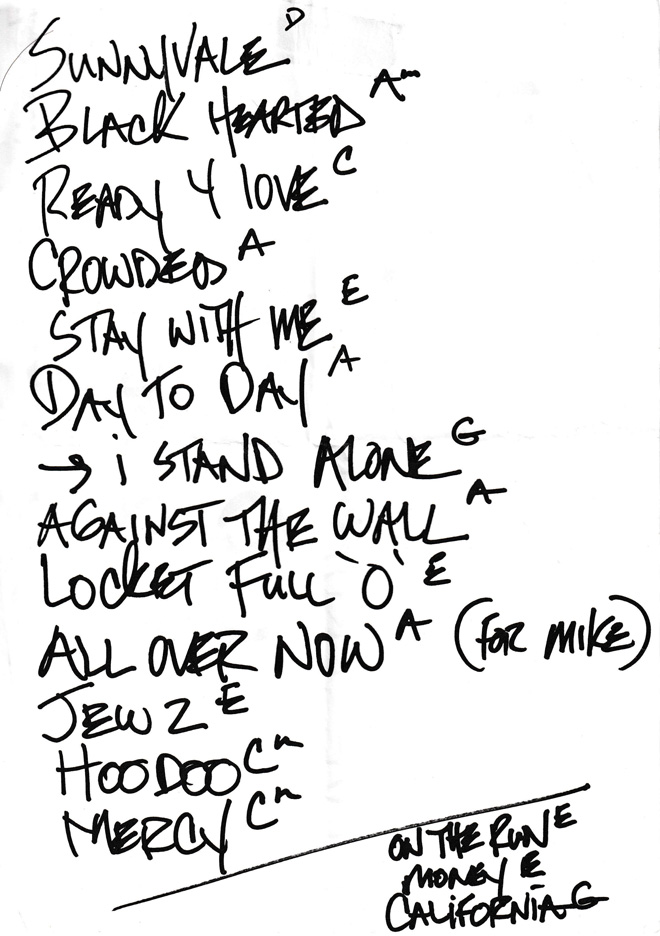 SUNNYVALE D
BLACK HEARTED Am
READY 4 LOVE C
CROWDED A
STAY WITH ME E
DAY TO DAY A
→ i STAND ALONE G
AGAINST THE WALL A
LOCKET FULL `O` E
ALL OVER NOW A (FOR MIKE)
JEWZ E
HOODOO Cm
MERCY Cm
ON THE RUN E
MONEY E
CALIFORNIA G